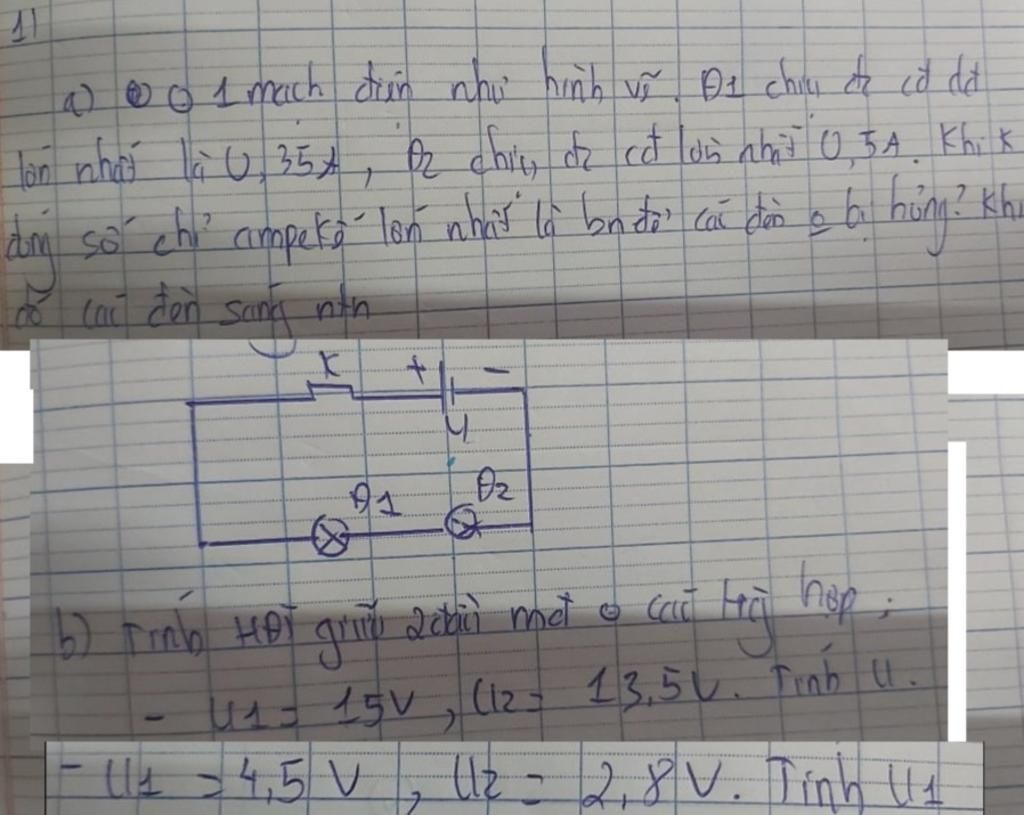 1)
a) ở 1 mạch điện như hình vẽ. Đ1 chịu đc cđ dđ
lớn nhất là 0,35A, Đ2 chịu đc cđ lớn nhất 0,5A. Khi K
đóng số chỉ ampekế lớn nhất là bn để các đèn o bị hỏng? Khi
đó các đèn sáng ntn
K + -
U
Đ1 Đ2
b) Tính HĐT giữa 2 đầu mđ ở các trg hợp:
- U1 = 15V, U2 = 13,5V. Tính U.
- U1 = 4,5 V, U2 = 2,8 V. Tính U1